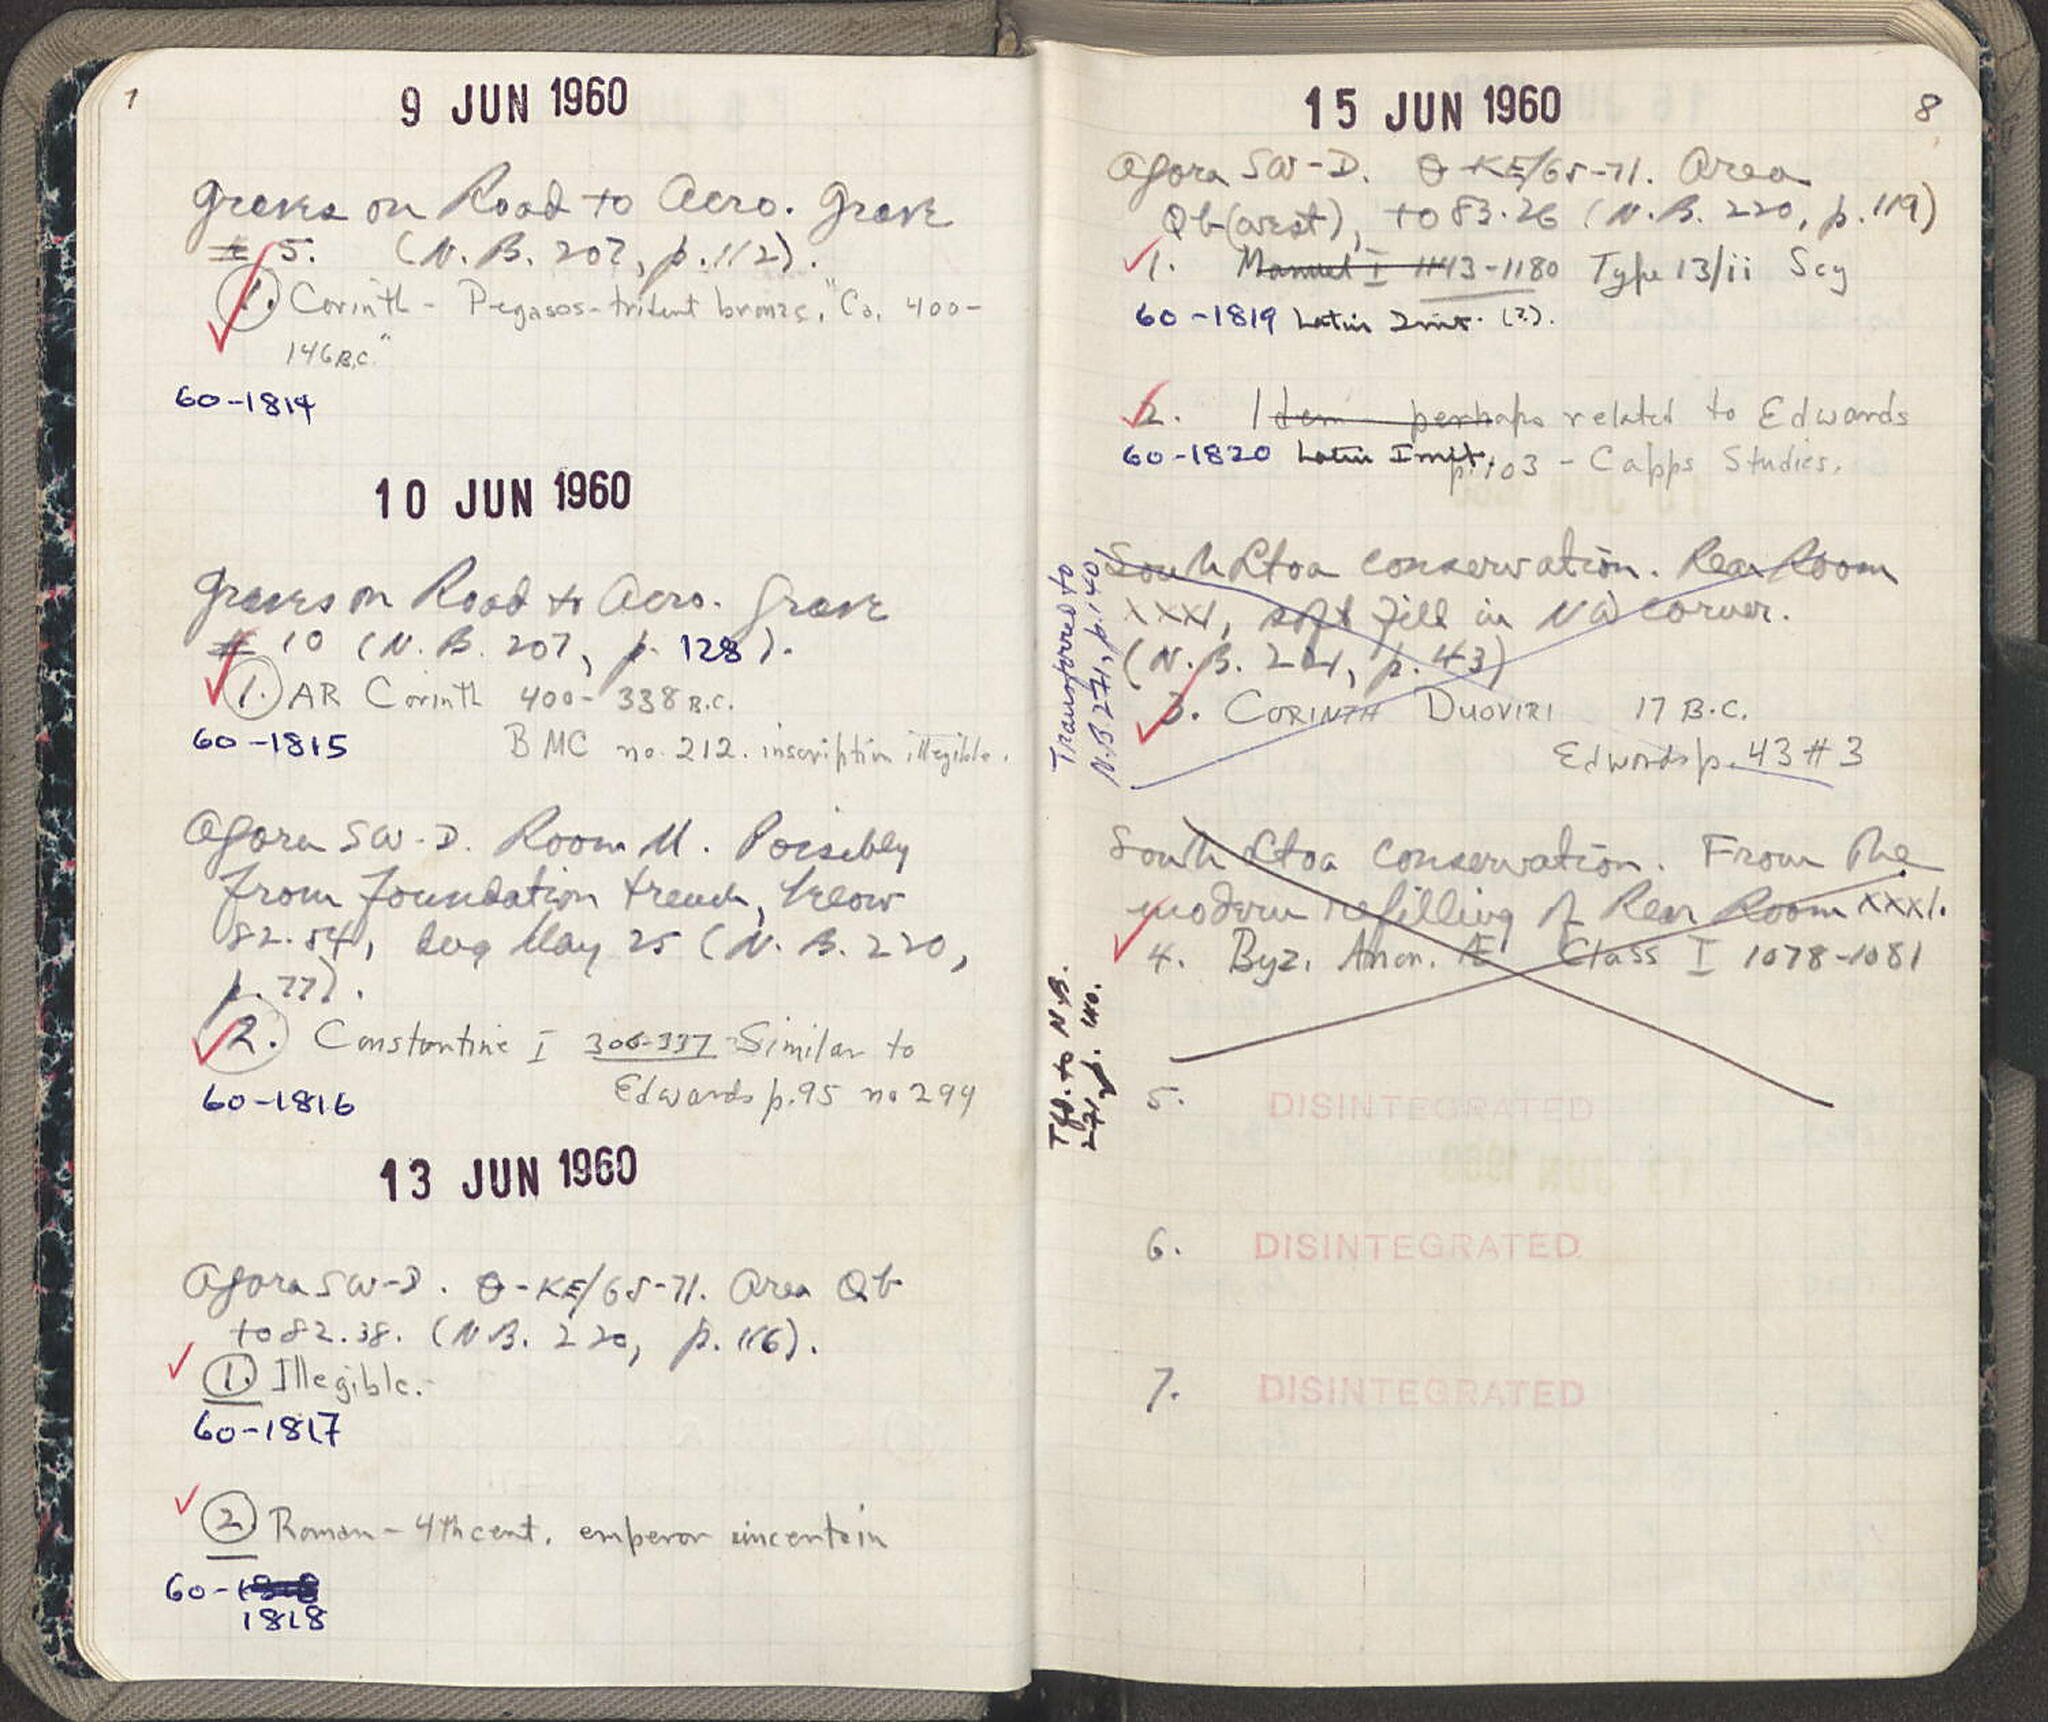 7
9 JUN 1960
Graves on Road to Acro. Grave
# 5. (N.B. 207, p. 112).
1. Corinth - Pegasos-trident bronze. "Co. 400-
146 B.C."
60-1814
10 JUN 1960
Graves on Road to Acro. Grave
# 10 (N.B. 207, p. 128).
1. AR Corinth 400-338 B.C.
60-1815 BMC no. 212. inscription illegible.
Agora SW-D. Room M. Possibly
from foundation trench, below
82.54, dug May 25 (N.B. 220,
p. 77).
2. Constantine I 306-337 Similar to
Edwards p. 95 no 294
60-1816
13 JUN 1960
Agora SW-D. O-KE/65-71. Area Qb
to 82.38. (N.B. 220, p. 116).
1. Illegible.
60-1817
2 Roman - 4th cent. emperor uncertain
60-
1818
8
15 JUN 1960
Agora SW-D. O-KE/65-71. Area
Qb (west), to 83.26 (N.B. 220, p. 119)
1. Manuel I 1143-1180 Type 13/ii Scy
60-1819 Latin Imit. (?).
2. Idem perhaps related to Edwards
60-1820 Latin Imit. p. 103 - Capps Studies.
South Stoa conservation. Rear Room
XXXI, soft fill in NW corner.
(N.B. 241, p. 43)
3. CORINTH DUOVIRI 17 B.C.
Edwards p. 43 # 3
Transferred to
N.B 271, p. 140
South Stoa conservation. From the
modern refilling of Rear Room XXXI.
4. Byz. Anon. Æ Class I 1078-1081
Tfd. to N.B.
271, p. 140.
5. DISINTEGRATED
6. DISINTEGRATED
7. DISINTEGRATED